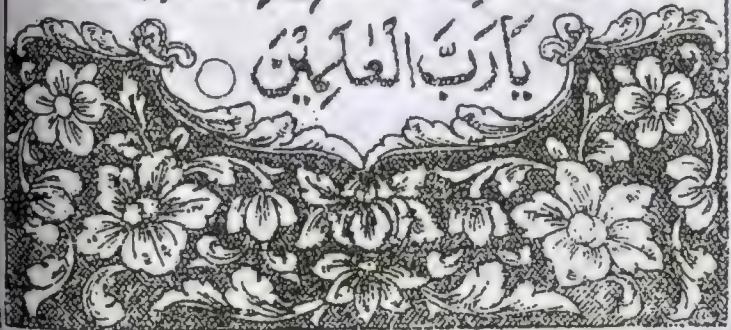 يَارَبَّ الْعٰلَمِيْنَ ○